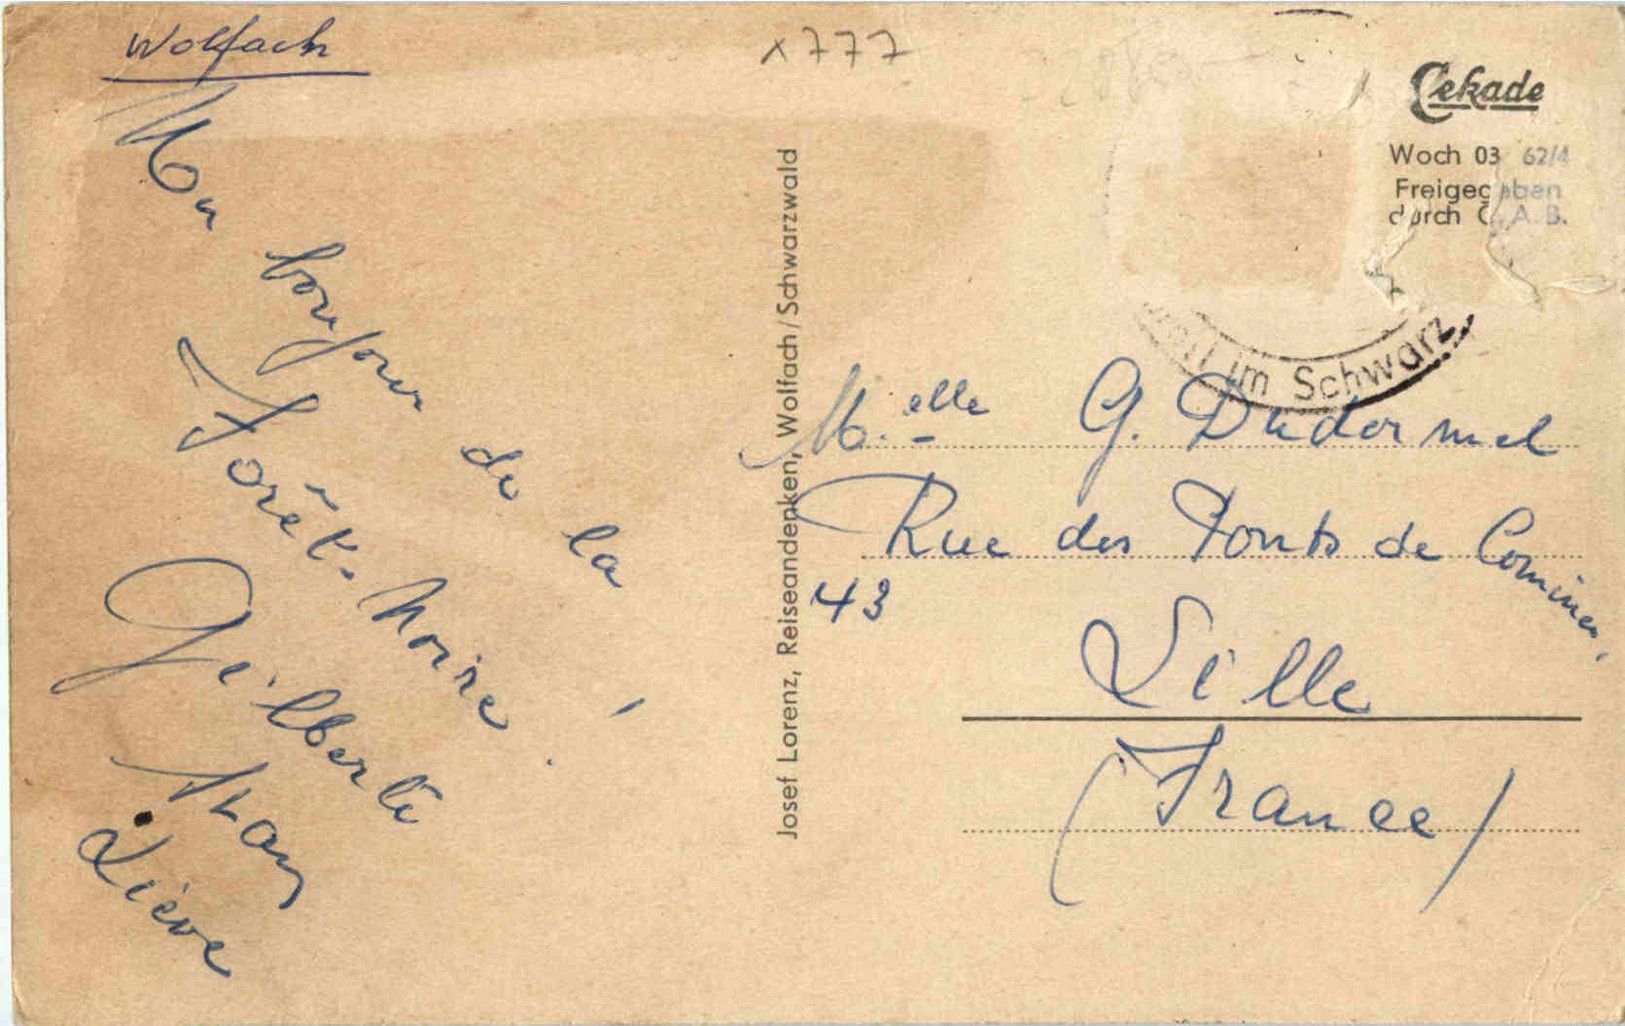 Wolfach
Mon bonjour de la
Forêt-Noire !
Gilberte
Liève
x777
Josef Lorenz, Reiseandenken, Wolfach/Schwarzwald
Cekade
Woch 03 62/4
Freigegeben
durch C.A.B.
im Schwarz
M.elle G. Dudermel
Rue des Ponts de Comines,
43
Lille
(France)